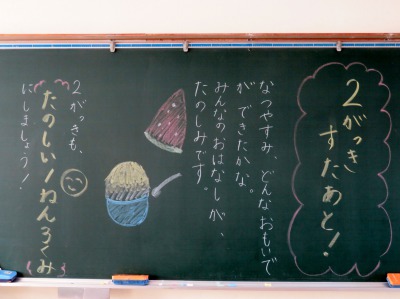 2がっき
すたあと!
なつやすみ、どんなおもいで
が できたかな。
みんなのおはなしが、
たのしみです。
2がっきも、
たのしい1ねん3くみ
にしましょう!